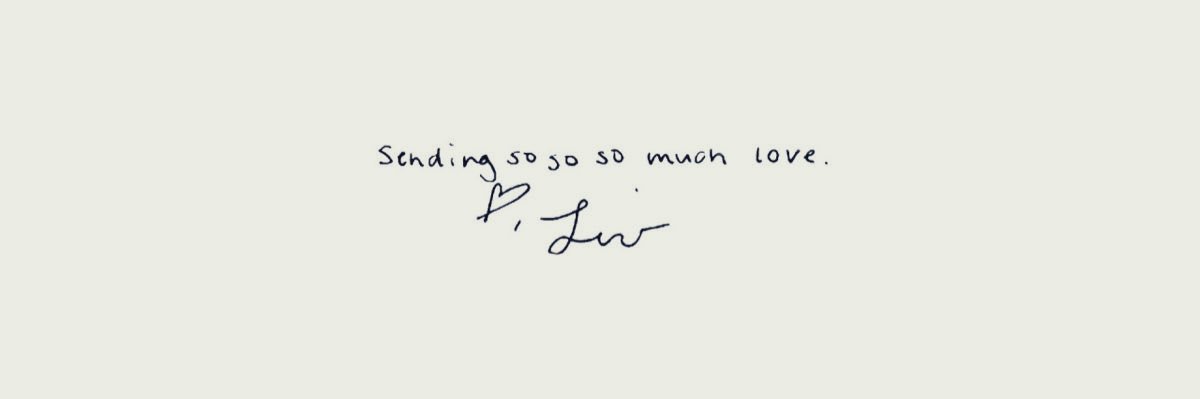 Sending so so so much love.
♡, Liv